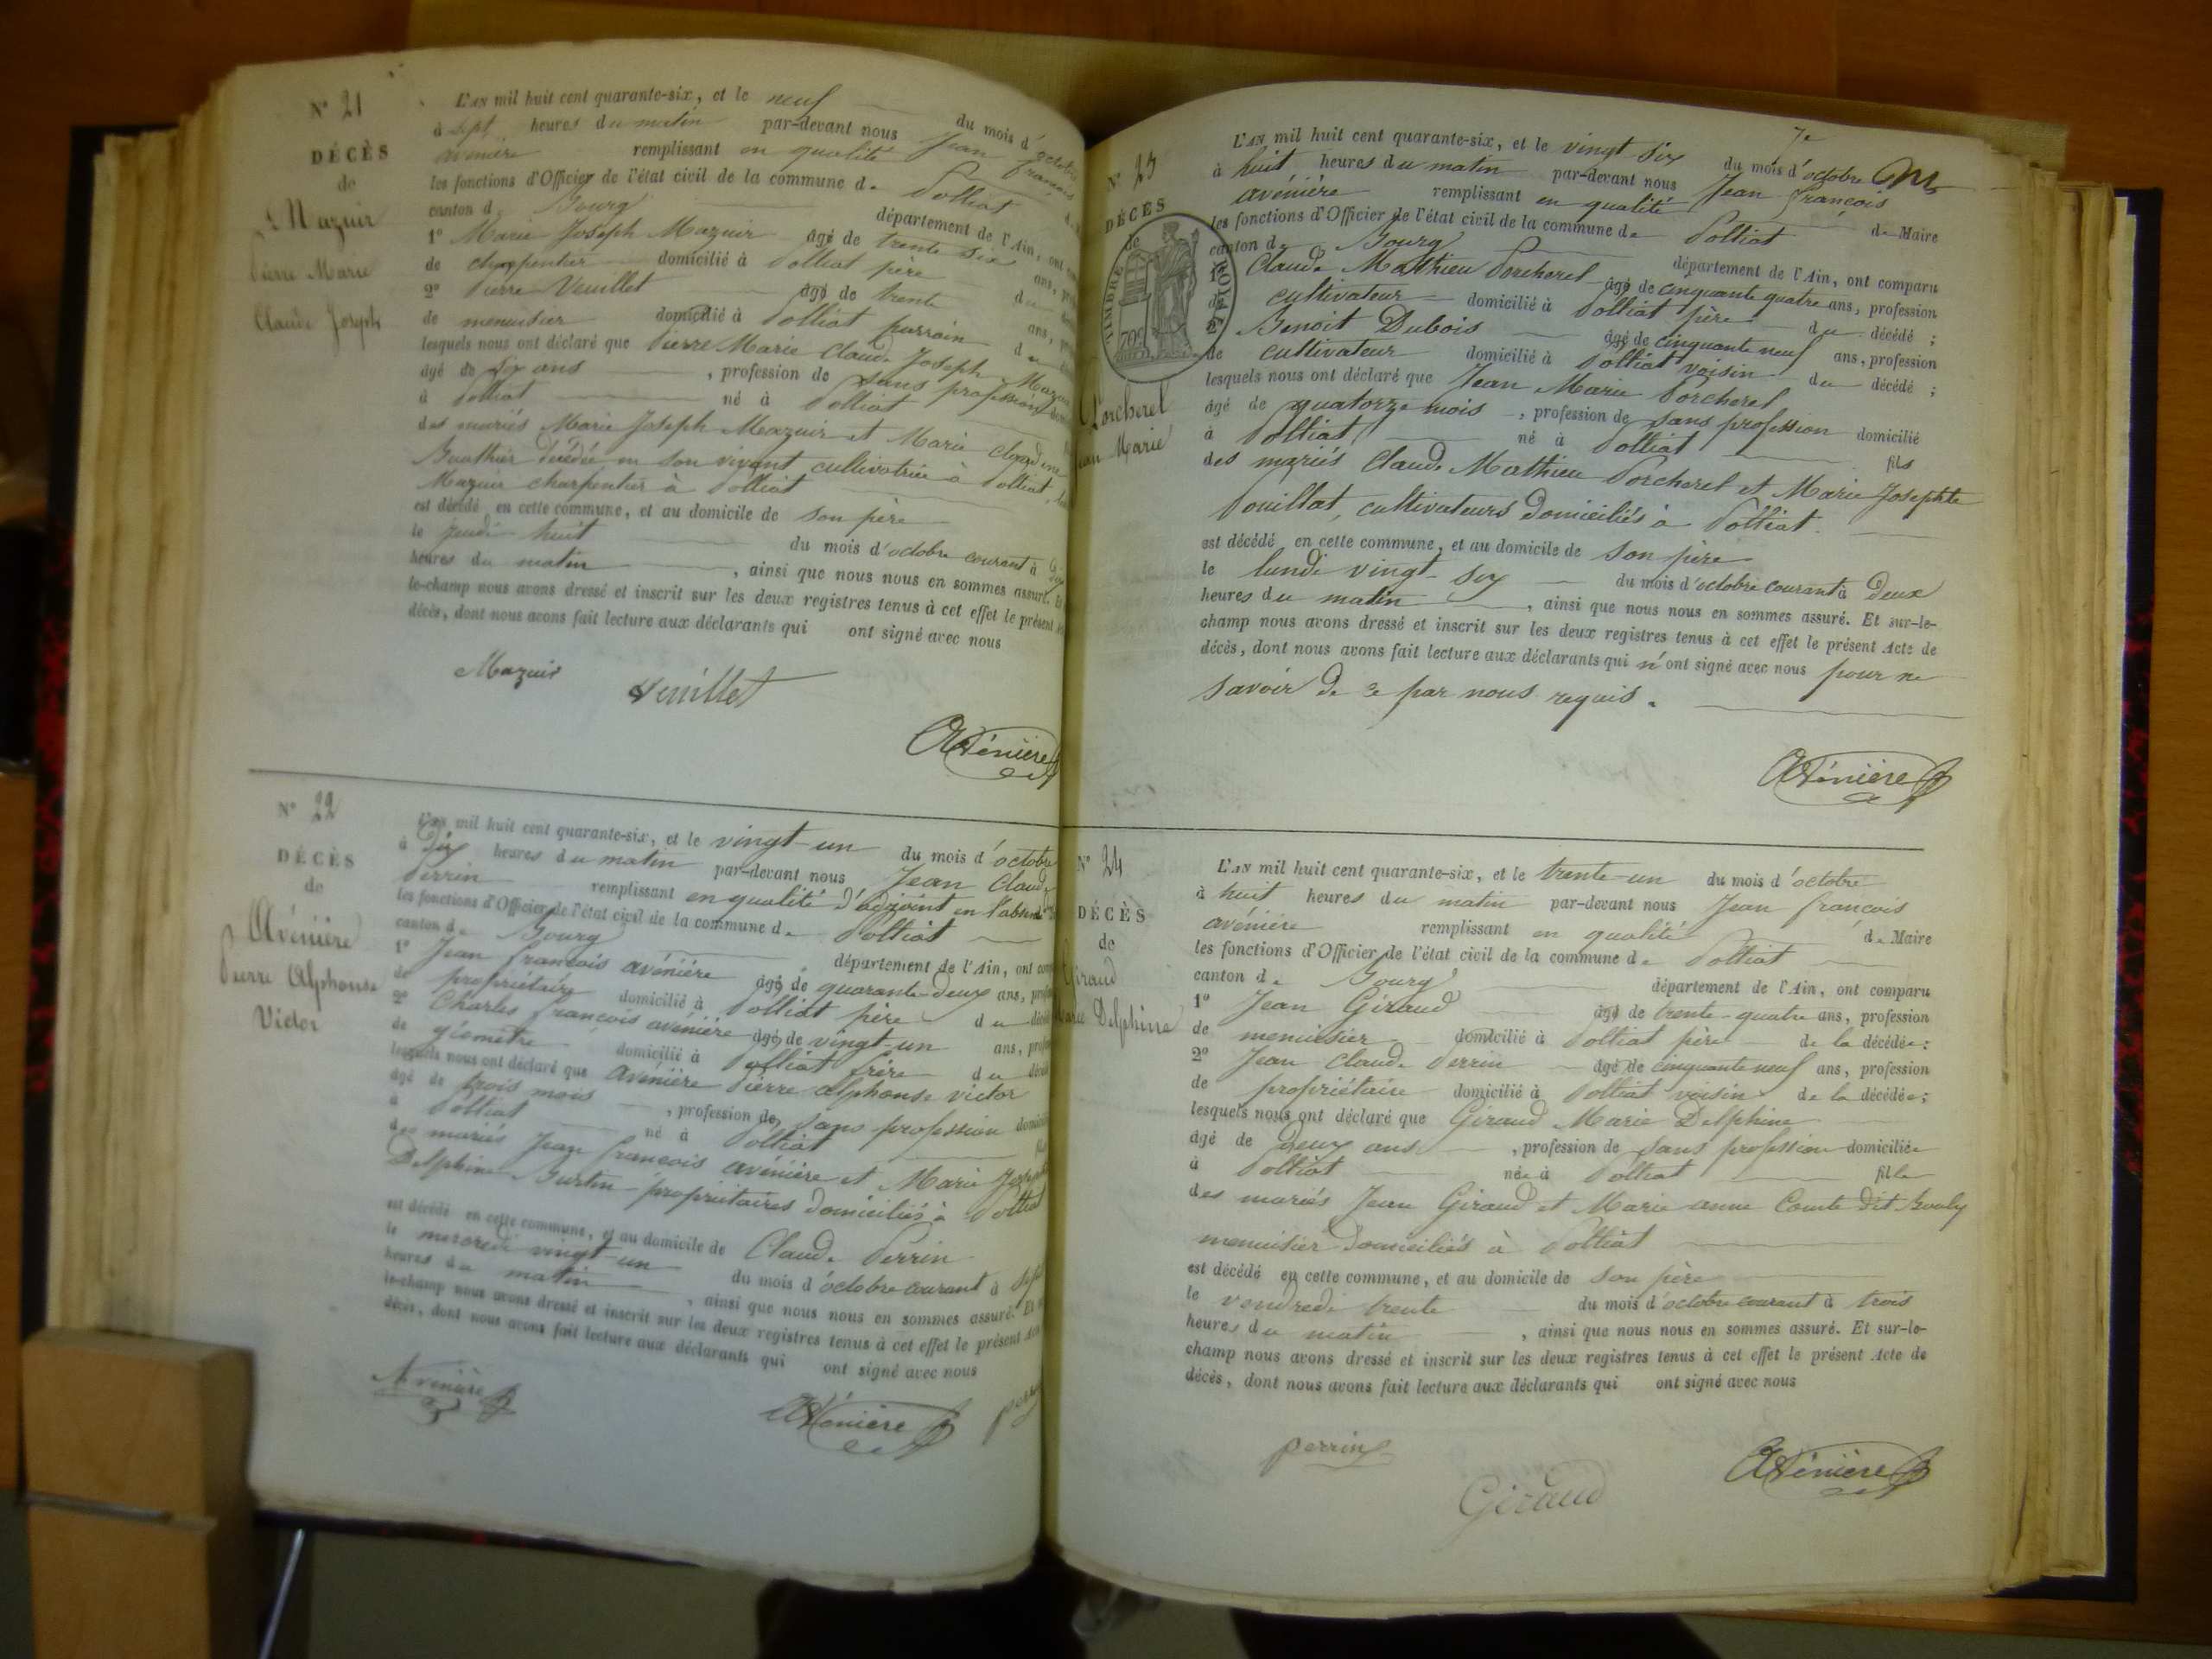 N° 21
DÉCÈS
de
Mazuir
Pierre Marie
Claude Joseph
L'AN mil huit cent quarante-six, et le neuf du mois d'octobre
à sept heures du matin par-devant nous Jean françois
avenière remplissant en qualité
les fonctions d'Officier de l'état civil de la commune de Polliat
canton d Bourg département de l'Ain, ont
1° Marie Joseph Mazuir âgé de trente six ans,
de charpentier domicilié à Polliat père du
2° Pierre Veuillet âgé de trente ans,
de menuisier domicilié à Polliat parrain du
lesquels nous ont déclaré que Pierre Marie Claude Joseph Mazuir
âgé de six ans, profession de sans profession
à Polliat né à Polliat
des mariés Marie Joseph Mazuir et Marie Claudine
Gauthier décédée en son vivant cultivatrice à Polliat,
Mazuir charpentier à Polliat
est décédé en cette commune, et au domicile de son père
le jeudi huit du mois d'octobre courant à
heures du matin, ainsi que nous nous en sommes assuré. Et
le-champ nous avons dressé et inscrit sur les deux registres tenus à cet effet le présent
décès, dont nous avons fait lecture aux déclarants qui ont signé avec nous
Mazuir
Veuillet
Avénière
N° 22
DÉCÈS
de
Avénière
Pierre Alphonse
Victor
L'AN mil huit cent quarante-six, et le vingt-un du mois d'octobre
à dix heures du matin par-devant nous Jean Claude
Perrin remplissant en qualité d'adjoint en l'absence
les fonctions d'Officier de l'état civil de la commune de Polliat
canton de Bourg département de l'Ain, ont
1° Jean françois avénière âgé de quarante-deux ans,
de propriétaire domicilié à Polliat père du
2° Charles françois avénière âgé de vingt-un ans,
de géomètre domicilié à Polliat frère du
lesquels nous ont déclaré que avénière Pierre alphonse victor
âgé de trois mois, profession de sans profession
à Polliat né à Polliat
des mariés Jean françois avénière et Marie
Delphine Burtin propriétaires domiciliés à Polliat
est décédé en cette commune, et au domicile de Claude Perrin
le mercredi vingt-un du mois d'octobre courant à
heures du matin, ainsi que nous nous en sommes assuré. Et
le-champ nous avons dressé et inscrit sur les deux registres tenus à cet effet le présent
décès, dont nous avons fait lecture aux déclarants qui ont signé avec nous
Avenière
Avénière
7e
N° 23
DÉCÈS
de
TIMBRE ROYAL
Porcherel
Jean Marie
L'AN mil huit cent quarante-six, et le vingt six du mois d'octobre
à huit heures du matin par-devant nous Jean françois
avénière remplissant en qualité de Maire
les fonctions d'Officier de l'état civil de la commune de Polliat
canton de Bourg département de l'Ain, ont comparu
1° Claude Matthieu Porcherel âgé de cinquante quatre ans, profession
de cultivateur domicilié à Polliat père du décédé ;
2° Benoit Dubois âgé de cinquante neuf ans, profession
de cultivateur domicilié à Polliat voisin du décédé ;
lesquels nous ont déclaré que Jean Marie Porcherel
âgé de quatorze mois, profession de sans profession domicilié
à Polliat né à Polliat fils
des mariés Claude Matthieu Porcherel et Marie Josephte
Pouillat, cultivateurs domiciliés à Polliat.
est décédé en cette commune, et au domicile de son père
le lundi vingt-six du mois d'octobre courant à deux
heures du matin, ainsi que nous nous en sommes assuré. Et sur-le-
champ nous avons dressé et inscrit sur les deux registres tenus à cet effet le présent Acte de
décès, dont nous avons fait lecture aux déclarants qui n'ont signé avec nous pour ne
savoir de ce par nous requis.
Avénière
N° 24
DÉCÈS
de
Giraud
Marie Delphine
L'AN mil huit cent quarante-six, et le trente-un du mois d'octobre
à huit heures du matin par-devant nous Jean françois
avénière remplissant en qualité de Maire
les fonctions d'Officier de l'état civil de la commune de Polliat
canton de Bourg département de l'Ain, ont comparu
1° Jean Giraud âgé de trente-quatre ans, profession
de menuisier domicilié à Polliat père de la décédée ;
2° Jean Claude Perrin âgé de cinquante neuf ans, profession
de propriétaire domicilié à Polliat voisin de la décédée ;
lesquels nous ont déclaré que Giraud Marie Delphine
âgé de deux ans, profession de sans profession domiciliée
à Polliat née à Polliat fille
des mariés Jean Giraud et Marie anne Comte dit Bouly
menuisier domiciliés à Polliat
est décédé en cette commune, et au domicile de son père
le vendredi trente du mois d'octobre courant à trois
heures du matin, ainsi que nous nous en sommes assuré. Et sur-le-
champ nous avons dressé et inscrit sur les deux registres tenus à cet effet le présent Acte de
décès, dont nous avons fait lecture aux déclarants qui ont signé avec nous
perrin
Giraud
Avénière